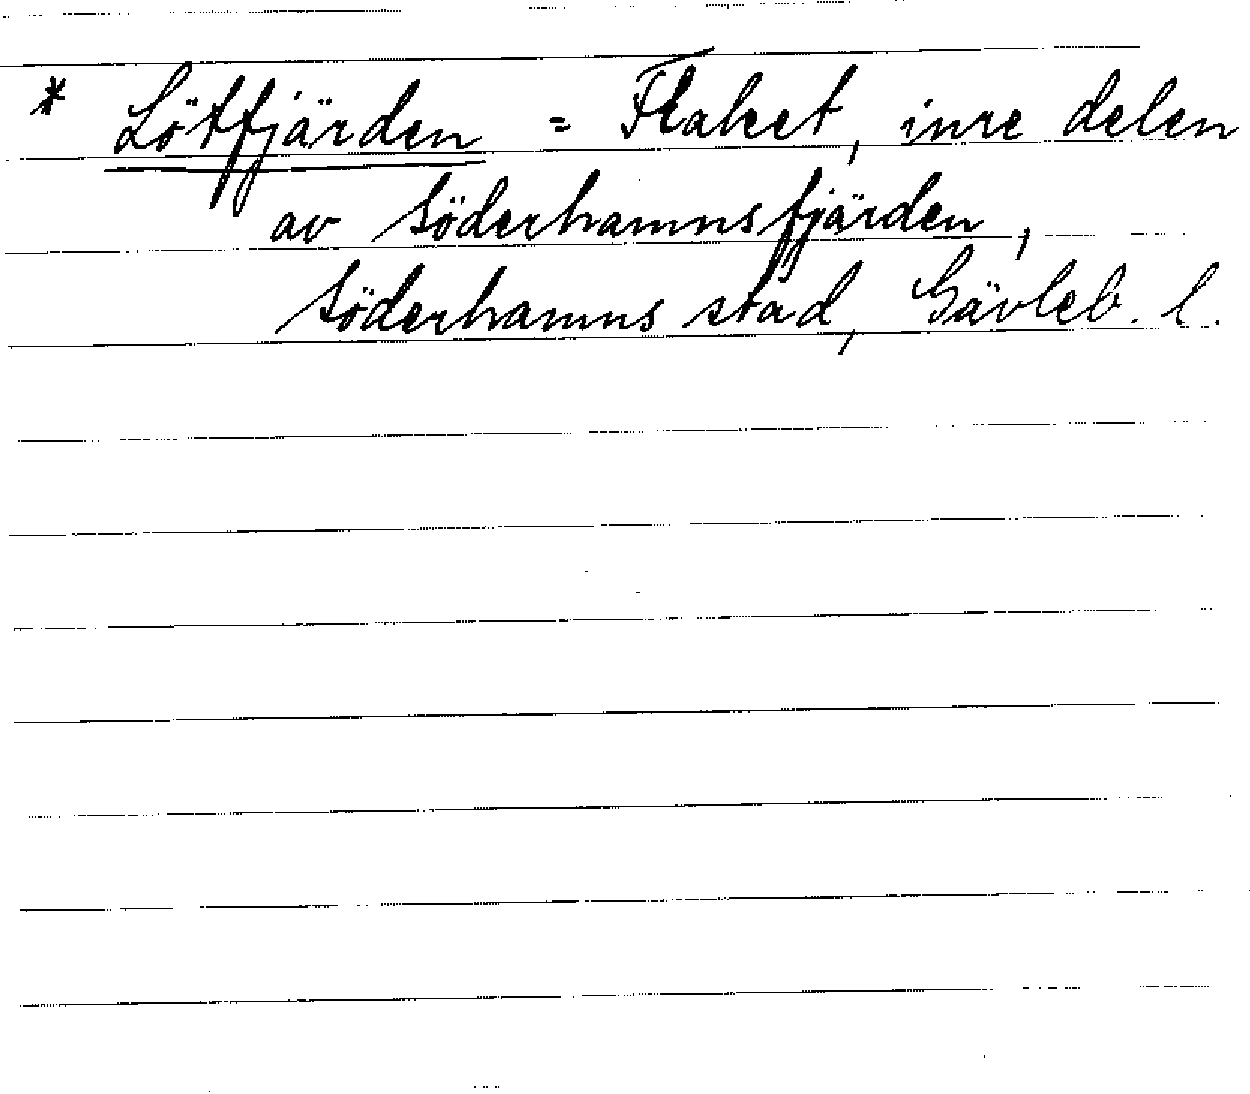 * Lötfjärden = Flaket, inre delen
av Söderhamnsfjärden,
Söderhamns stad, Gävleb. l.